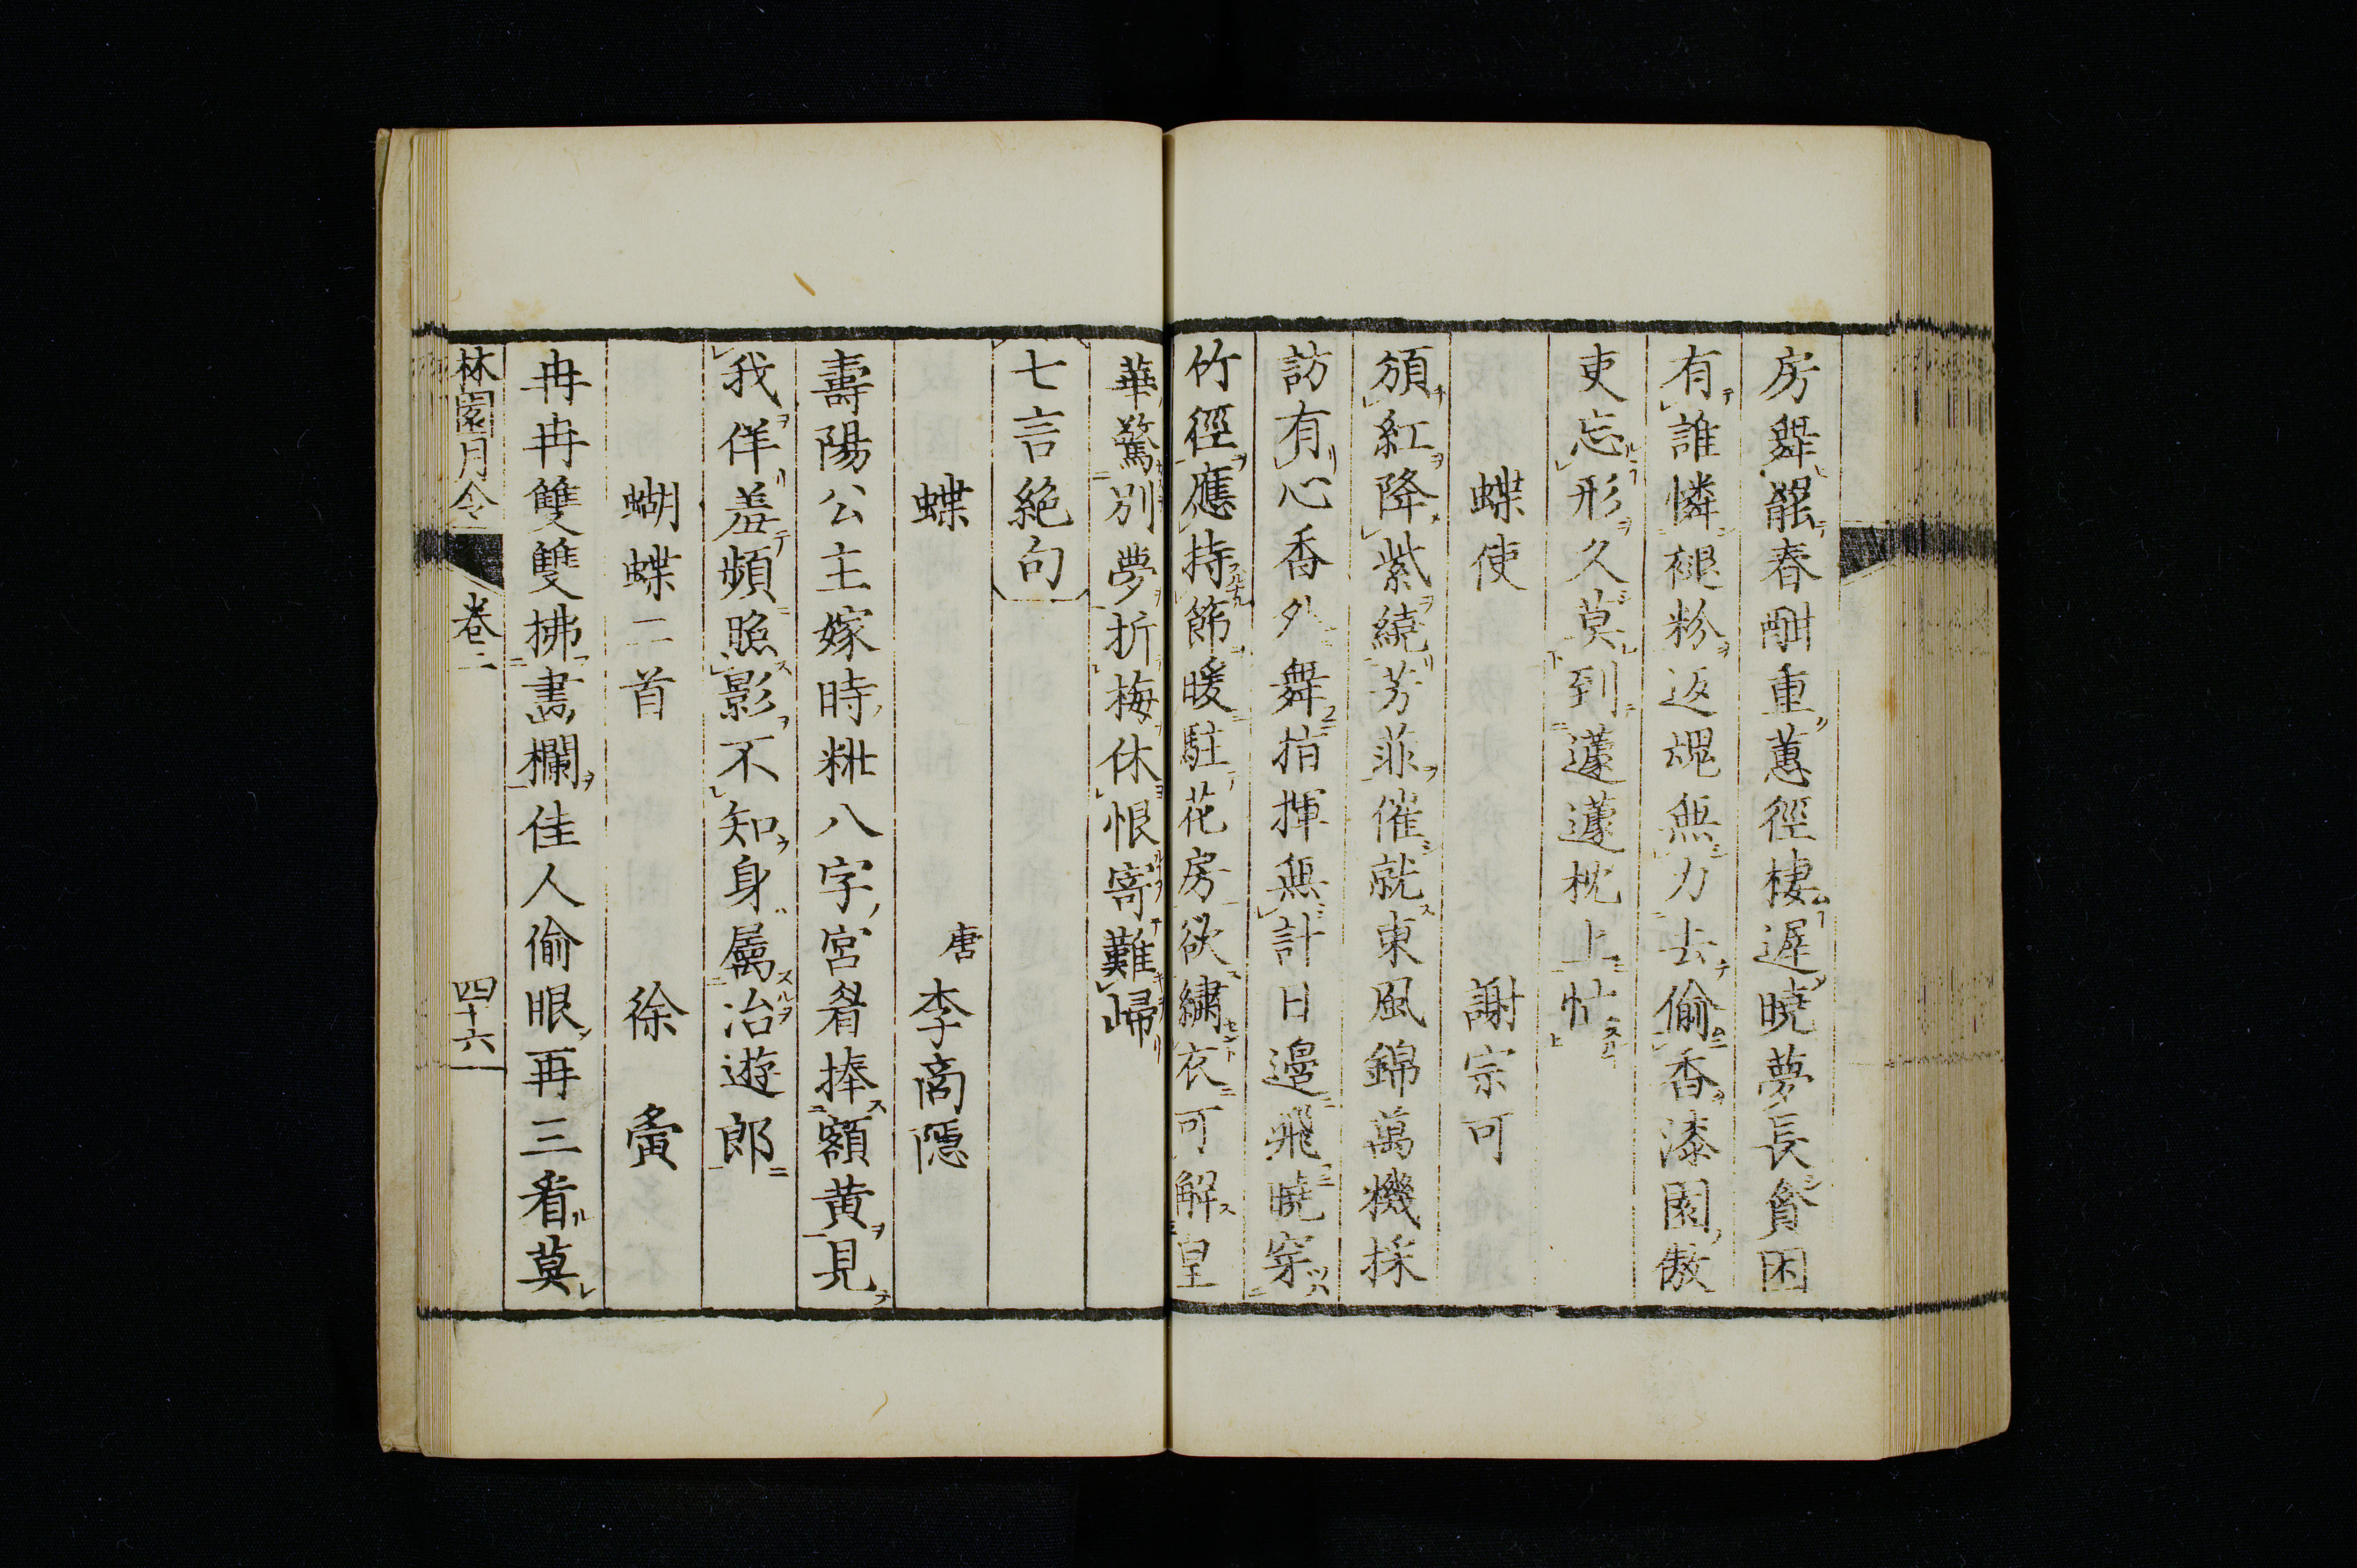 房舞罷春酣重蕙徑棲遲曉夢長貧困
有誰憐褪粉返魂無力去偷香漆園傲
吏忘形久莫到蘧蘧枕上忙
蝶使 謝宗可
頒紅降紫繞芳菲催就東風錦萬機採
訪有心香外舞指揮無計日邊飛曉穿
竹徑應持節暖駐花房欲繡衣可解皇
華驚別夢折梅休恨寄難歸
七言絶句
蝶 唐 李商隱
壽陽公主嫁時粧八字宮眉捧額黄見
我佯羞頻照影不知身屬冶遊郎
蝴蝶二首 徐夤
冉冉雙雙拂畵欄佳人偷眼再三看莫
林園月令 卷二 四十六